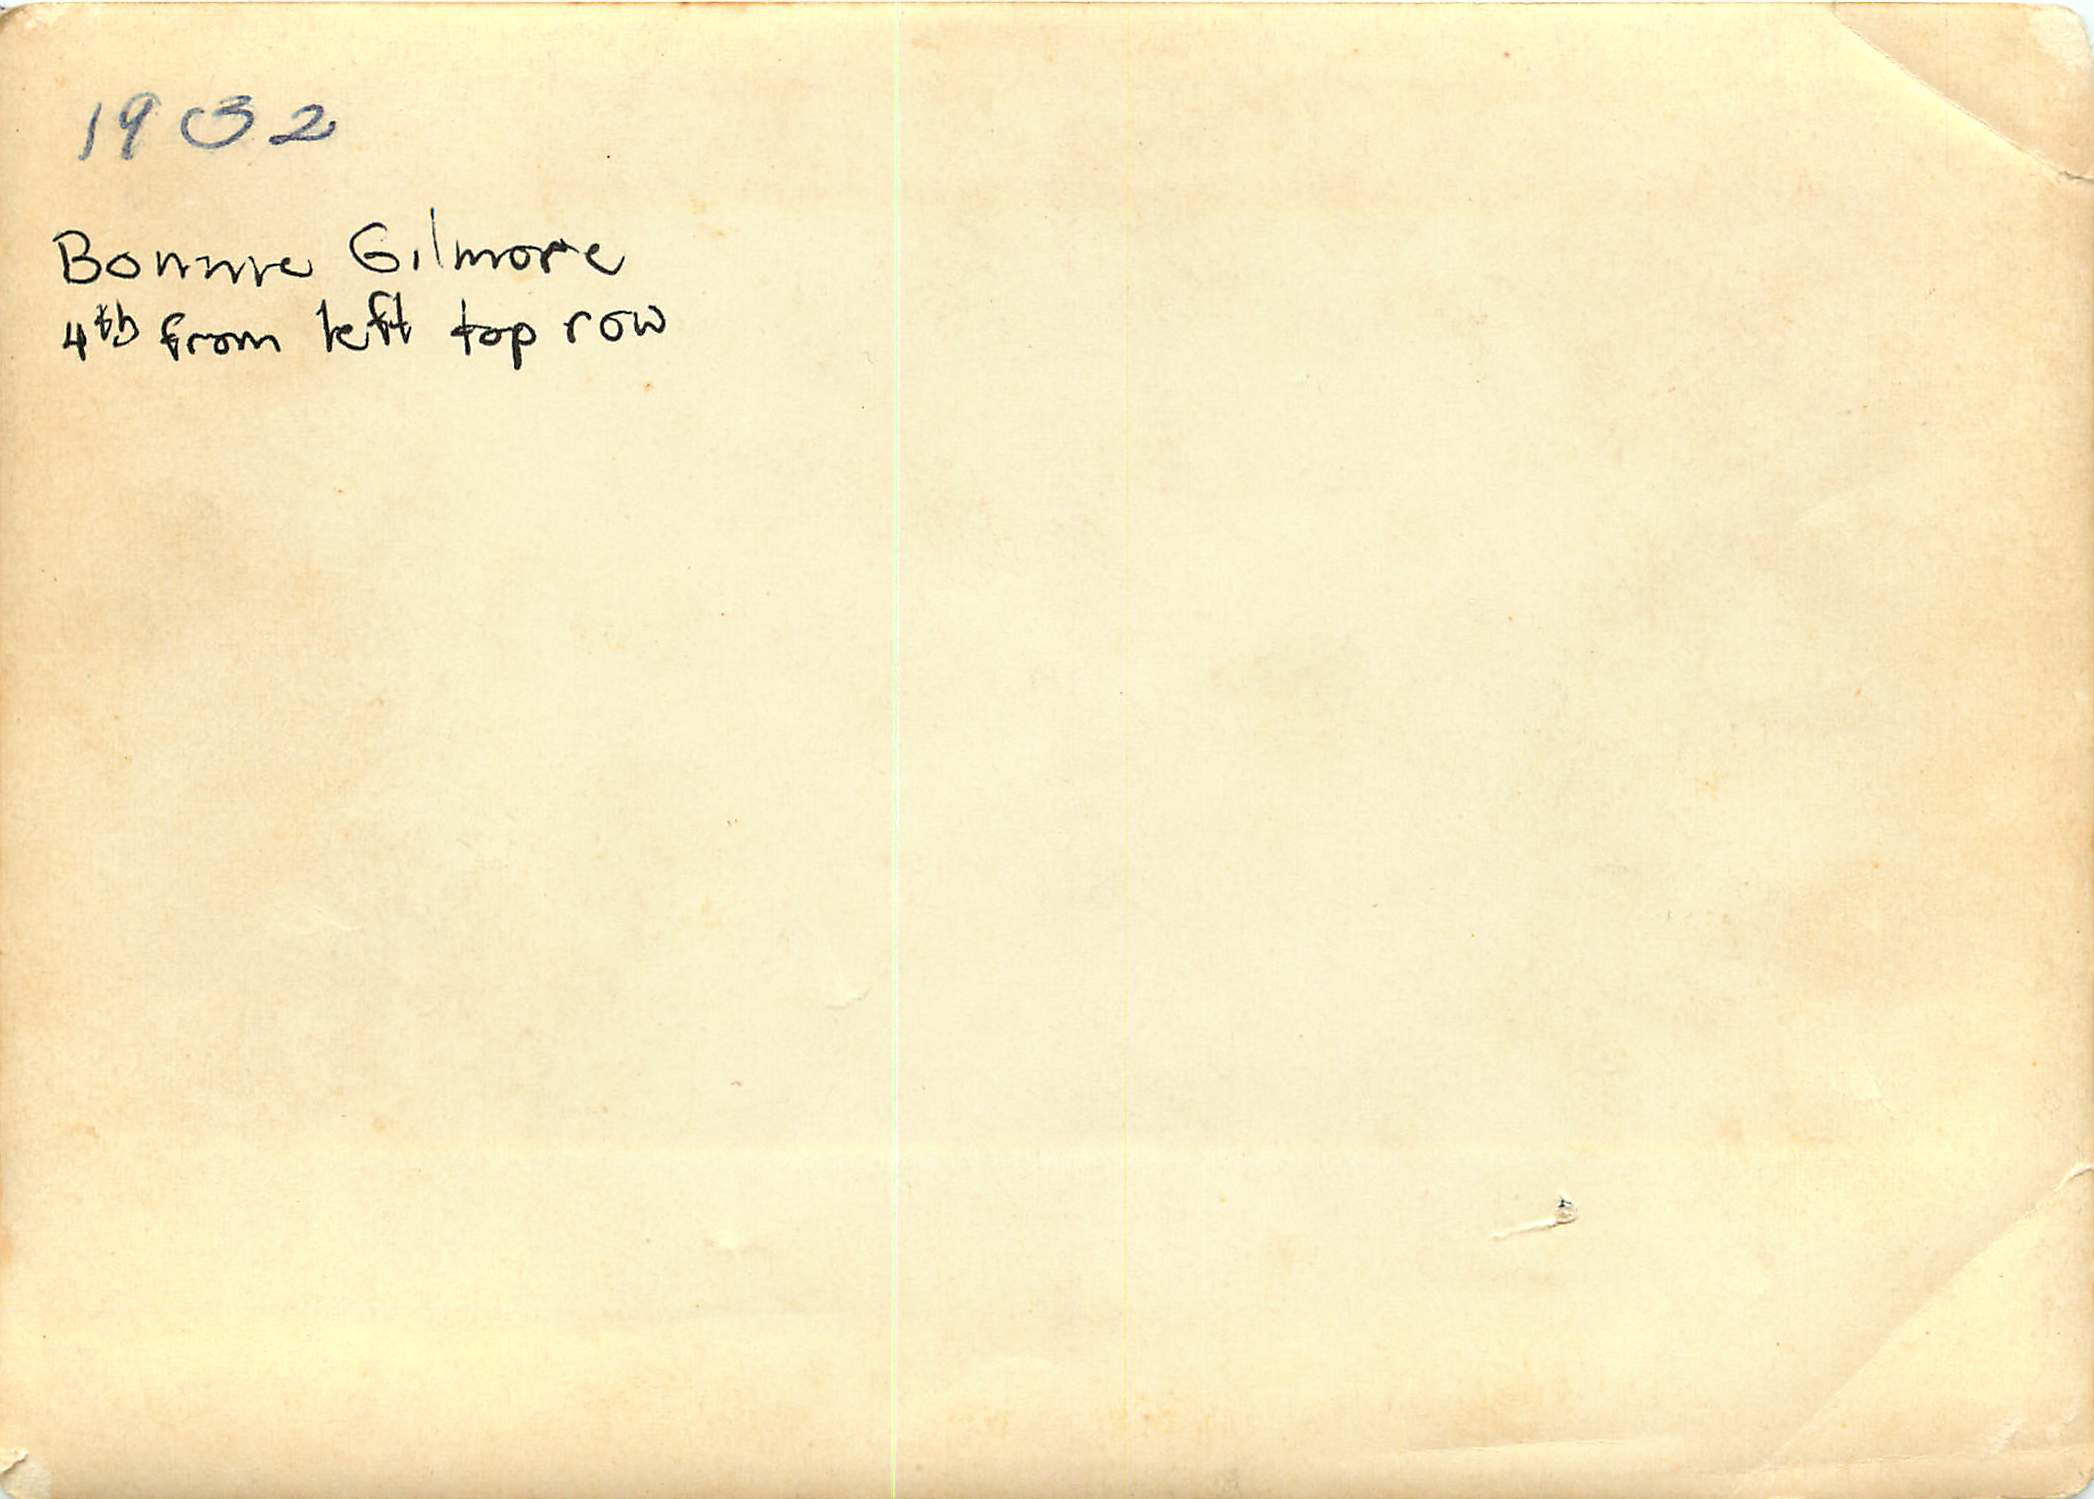 1932
Bonnie Gilmore
4th from left top row